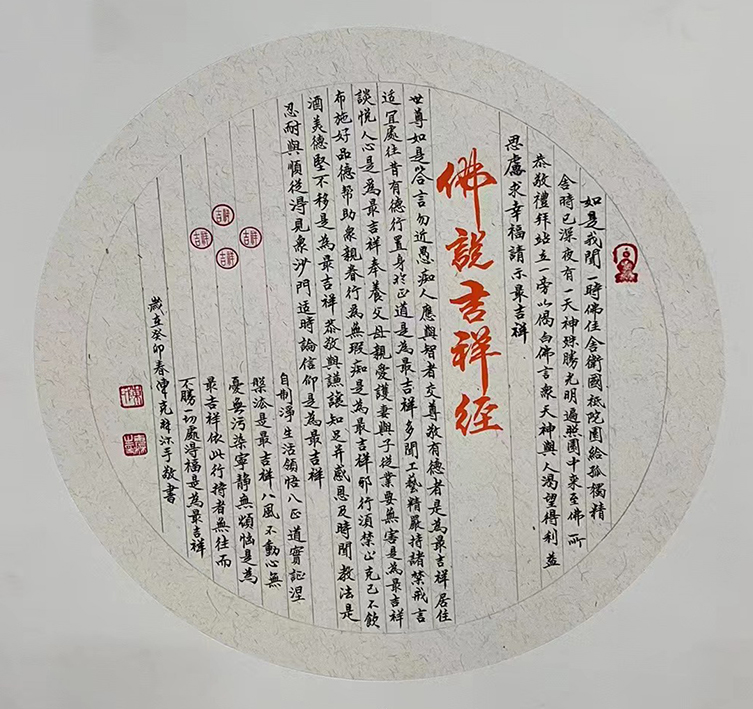 如是我聞一時佛住舍衛國祇院園給孤獨精
舍時已深夜有一天神殊勝光明遍照園中來至佛所
恭敬禮拜站立一旁以偈白佛言衆天神與人渴望得利益
思慮求幸福請示最吉祥
佛說吉祥經
世尊如是答言勿近愚痴人應與智者交尊敬有德者是為最吉祥居住
適宜處往昔有德行置身於正道是為最吉祥多聞工藝精嚴持諸禁戒言
談悅人心是為最吉祥奉養父母親愛護妻與子從業要無害是為最吉祥
布施好品德幫助衆親眷行為無瑕痴是為最吉祥邪行須禁止克己不飲
酒美德堅不移是為最吉祥恭敬與謙讓知足并感恩及時聞教法是
忍耐與順從得見衆沙門適時論信仰是為最吉祥
自制淨生活領悟八正道實証涅
槃法是最吉祥八風不動心無
憂無污染寧靜無煩惱是為
最吉祥依此行持者無往而
不勝一切處得福是為最吉祥
歲在癸卯春傅克沐手敬書
吉祥
吉祥
吉祥
吉祥